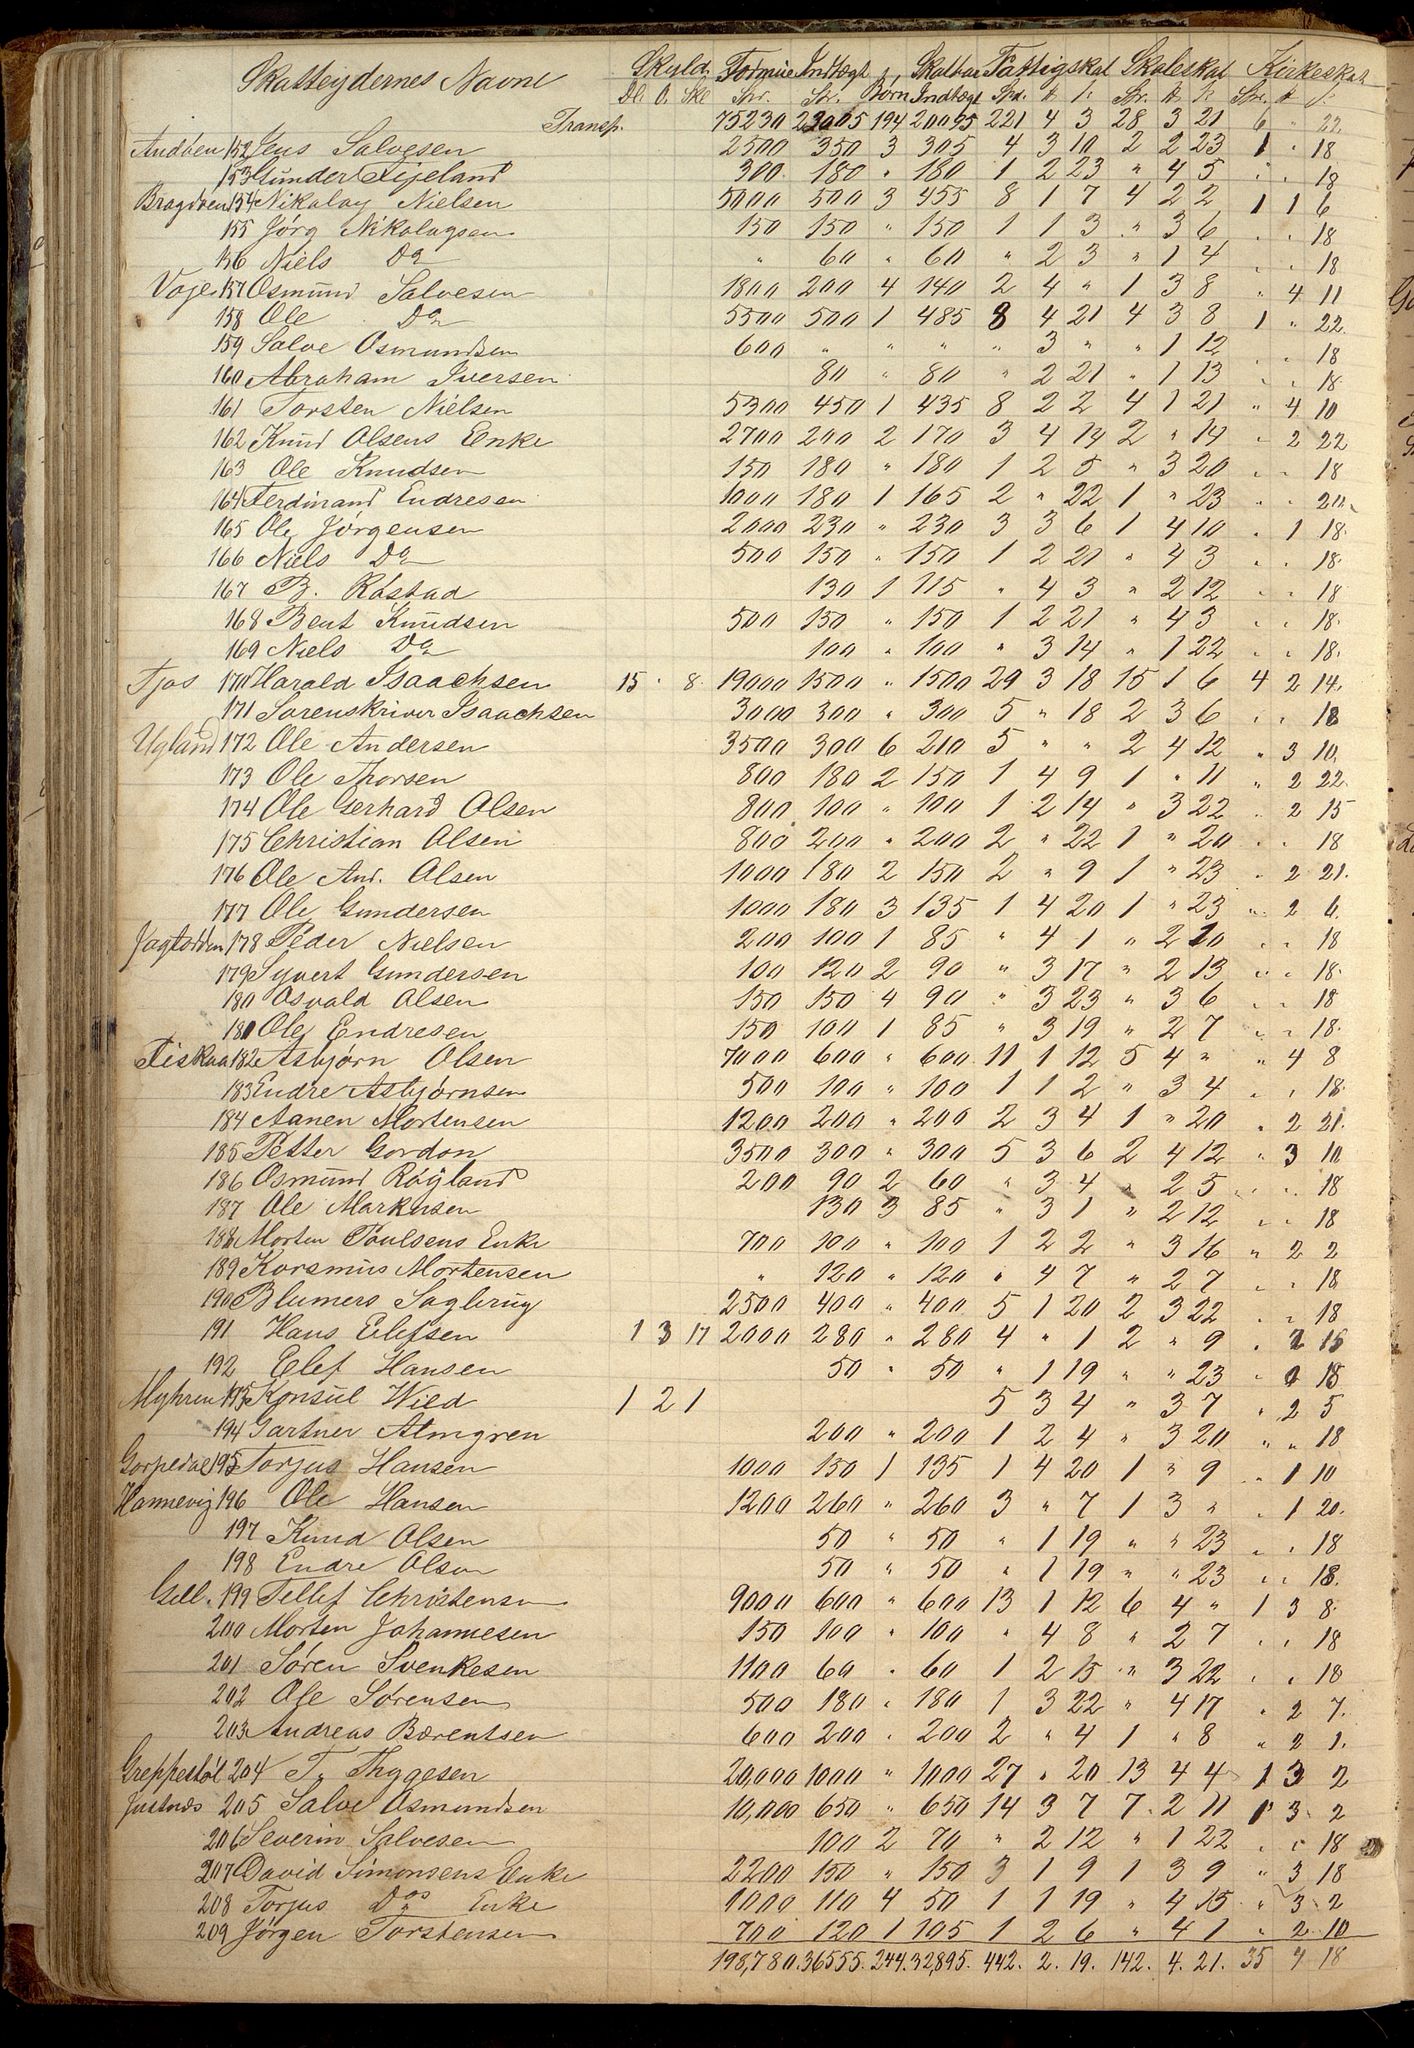 Skatteydernes Navne Skyld. Formue Indtægt Børn Skatbar Indtægt Fattigskat Skoleskat Kirkeskat
Transp. 75230 23005 194 20095 221 4 3 28 3 21 6 " 22
Andøen 152 Jens Salvesen 2500 350 3 305 4 3 10 2 2 23 1 " 18
153 Gunder Fijeland 300 180 " 180 1 2 23 " 4 5 " " 18
Bragdøen 154 Nikolay Nielsen 5000 500 3 455 8 1 7 4 2 2 1 1 6
155 Jørg Nikolaysen 150 150 " 150 1 1 3 " 3 6 " " 18
156 Niels Do " 60 " 60 " 2 3 " 1 4 " " 18
Voje 157 Osmund Salvesen 1800 200 4 140 2 4 " 1 3 8 " 4 11
158 Ole Do 5500 500 1 485 8 4 21 4 3 8 1 " 22
159 Salve Osmundsen 600 " " " " 3 " " 1 12 " " 18
160 Abraham Iversen 80 " 80 " 2 21 " 1 13 " " 18
161 Torsten Nielsen 5300 450 1 435 8 2 2 4 1 21 " 4 10
162 Knud Olsens Enke 2700 200 2 170 3 4 14 2 " 14 " 2 22
163 Ole Knudsen 150 180 " 180 1 2 5 " 3 20 " " 18
164 Ferdinand Endresen 1000 180 1 165 2 " 22 1 " 23 " " 20
165 Ole Jørgensen 2000 230 " 230 3 3 6 1 4 10 " 1 18
166 Niels Do 500 150 " 150 1 2 21 " 4 3 " " 18
167 B. Røstad 130 1 115 " 4 3 " 2 12 " " 18
168 Bent Knudsen 500 150 " 150 1 2 21 " 4 3 " " 18
169 Niels Do 100 " 100 " 3 14 " 1 22 " " 18
Tjos 170 Harald Isaachsen 15 " 8 19000 1500 " 1500 29 3 18 15 1 6 4 2 14
171 Sorenskriver Isaachsen 3000 300 " 300 5 " 18 2 3 6 " " 18
Ugland 172 Ole Andersen 3500 300 6 210 5 " " 2 4 12 " 3 10
173 Ole Thorsen 800 180 2 150 1 4 9 1 " 11 " 2 22
174 Ole Gerhard Olsen 800 100 " 100 1 2 14 " 3 22 " 2 15
175 Christian Olsen 800 200 " 200 2 " 22 1 " 20 " " 18
176 Ole And. Olsen 1000 180 2 150 2 " 9 1 " 23 " 2 21
177 Ole Gundersen 1000 180 3 135 1 4 20 1 " 23 " 2 6
178 Peder Nielsen 200 100 1 85 " 4 1 " 2 10 " " 18
179 Syvert Gundersen 100 120 2 90 " 3 17 " 2 13 " " 18
180 Osvald Olsen 150 150 4 90 " 3 23 " 3 6 " " 18
181 Ole Endresen 150 100 1 85 " 3 19 " 2 7 " " 18
Fiskaa 182 Asbjørn Olsen 7000 600 " 600 11 1 12 5 4 " " 4 8
183 Endre Asbjørnsen 500 100 " 100 1 1 2 " 3 4 " " 18
184 Aanen Mortensen 1200 200 " 200 2 3 4 1 " 20 " 2 21
185 Petter Gordon 3500 300 " 300 5 3 6 2 4 12 " 3 10
186 Osmund Røyland 200 90 2 60 " 3 4 " 2 5 " " 18
187 Ole Markusen 130 3 85 " 3 1 " 2 12 " " 18
188 Morten Poulsens Enke 700 100 " 100 1 2 2 " 3 16 " 2 2
189 Korsmus Mortensen " 120 " 120 " 4 7 " 2 7 " " 18
190 Blumers Sagbrug 2500 400 " 400 5 1 20 2 3 22 " " 18
191 Hans Eilefsen 1 3 17 2000 280 " 280 4 " 1 2 " 9 " 2 15
192 Elef Hansen 50 " 50 " 1 19 " " 23 " " 18
Myhren 193 Konsul Wild 1 2 1 5 3 4 " 3 7 " 2 5
194 Gartner Almgren 200 " 200 1 2 4 " 3 20 " " 18
Gorpedal 195 Torjus Hansen 1000 150 1 135 1 4 20 1 " 9 " 1 10
Hannevig 196 Ole Hansen 1200 260 " 260 3 " 7 1 3 " " 1 20
197 Knud Olsen 50 " 50 " 1 19 " " 23 " " 18
198 Endre Olsen 50 " 50 " 1 19 " " 23 " " 18
Gill. 199 Tellef Christensen 9000 600 " 600 13 1 12 6 4 " 1 3 8
200 Morten Johannesen 150 100 " 100 " 4 8 " 2 7 " " 18
201 Søren Svenkesen 1100 60 " 60 1 2 15 " 3 22 " " 18
202 Ole Sørensen 500 180 " 180 1 3 22 " 4 17 " 2 7
203 Andreas Bærentsen 600 200 " 200 2 " 4 1 " 8 " 2 1
Greppestøl 204 T. Thygesen 20,000 1000 " 1000 27 " 20 13 4 4 1 3 2
Justnæs 205 Salve Osmundsen 10,000 650 " 650 14 3 7 7 2 11 1 3 2
206 Severin Salvesen 100 2 70 " 2 12 " 1 22 " " 18
207 David Simonsens Enke 2200 150 " 150 3 1 9 1 3 9 " 3 18
208 Torjus Dos Enke 1000 110 4 50 1 1 19 " 4 15 " 3 2
209 Jørgen Torstensen 700 120 1 105 1 2 6 " 4 1 " 2 10
198,780. 36555. 244. 32,895. 442. 2. 19. 142. 4. 21. 35 7 18